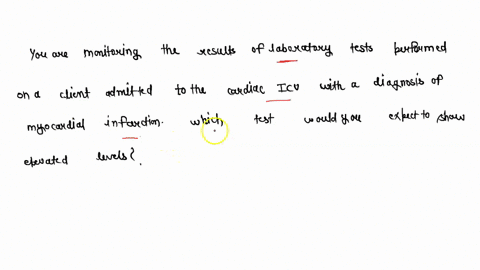 You are monitoring the results of laboratory tests performed
on a client admitted to the cardiac ICU with a diagnosis of
myocardial infarction. which test would you expect to show
elevated levels?